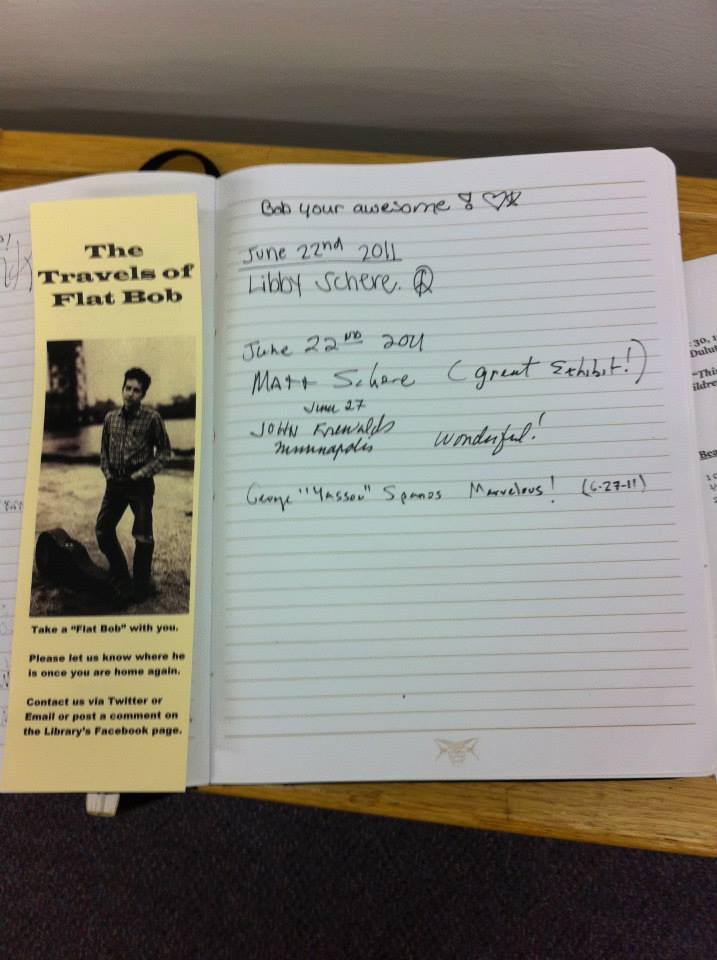 The
Travels of
Flat Bob
Take a "Flat Bob" with you.
Please let us know where he
is once you are home again.
Contact us via Twitter or
Email or post a comment on
the Library's Facebook page.
Bob your awesome !
June 22nd 2011
Libby Schere.
June 22ND 2011
Matt Schere (great Exhibit!)
June 27
JOHN wonderful!
Minnapolis
George "Yassou" Spanos Marvelous! (6-27-11)
30, 1
Dulut
"This
ildre